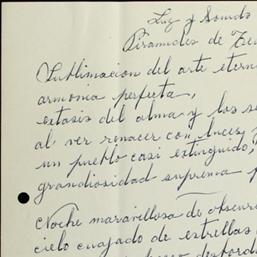 Luz y Sonido
Piramides de
Sublimacion del arte etern
armonia perfecta,
extasis del alma y los se
al ver renacer con luces
un pueblo casi extinguido,
grandiosidad suprema
Noche maravillosa de obscuri
cielo cuajado de estrellas